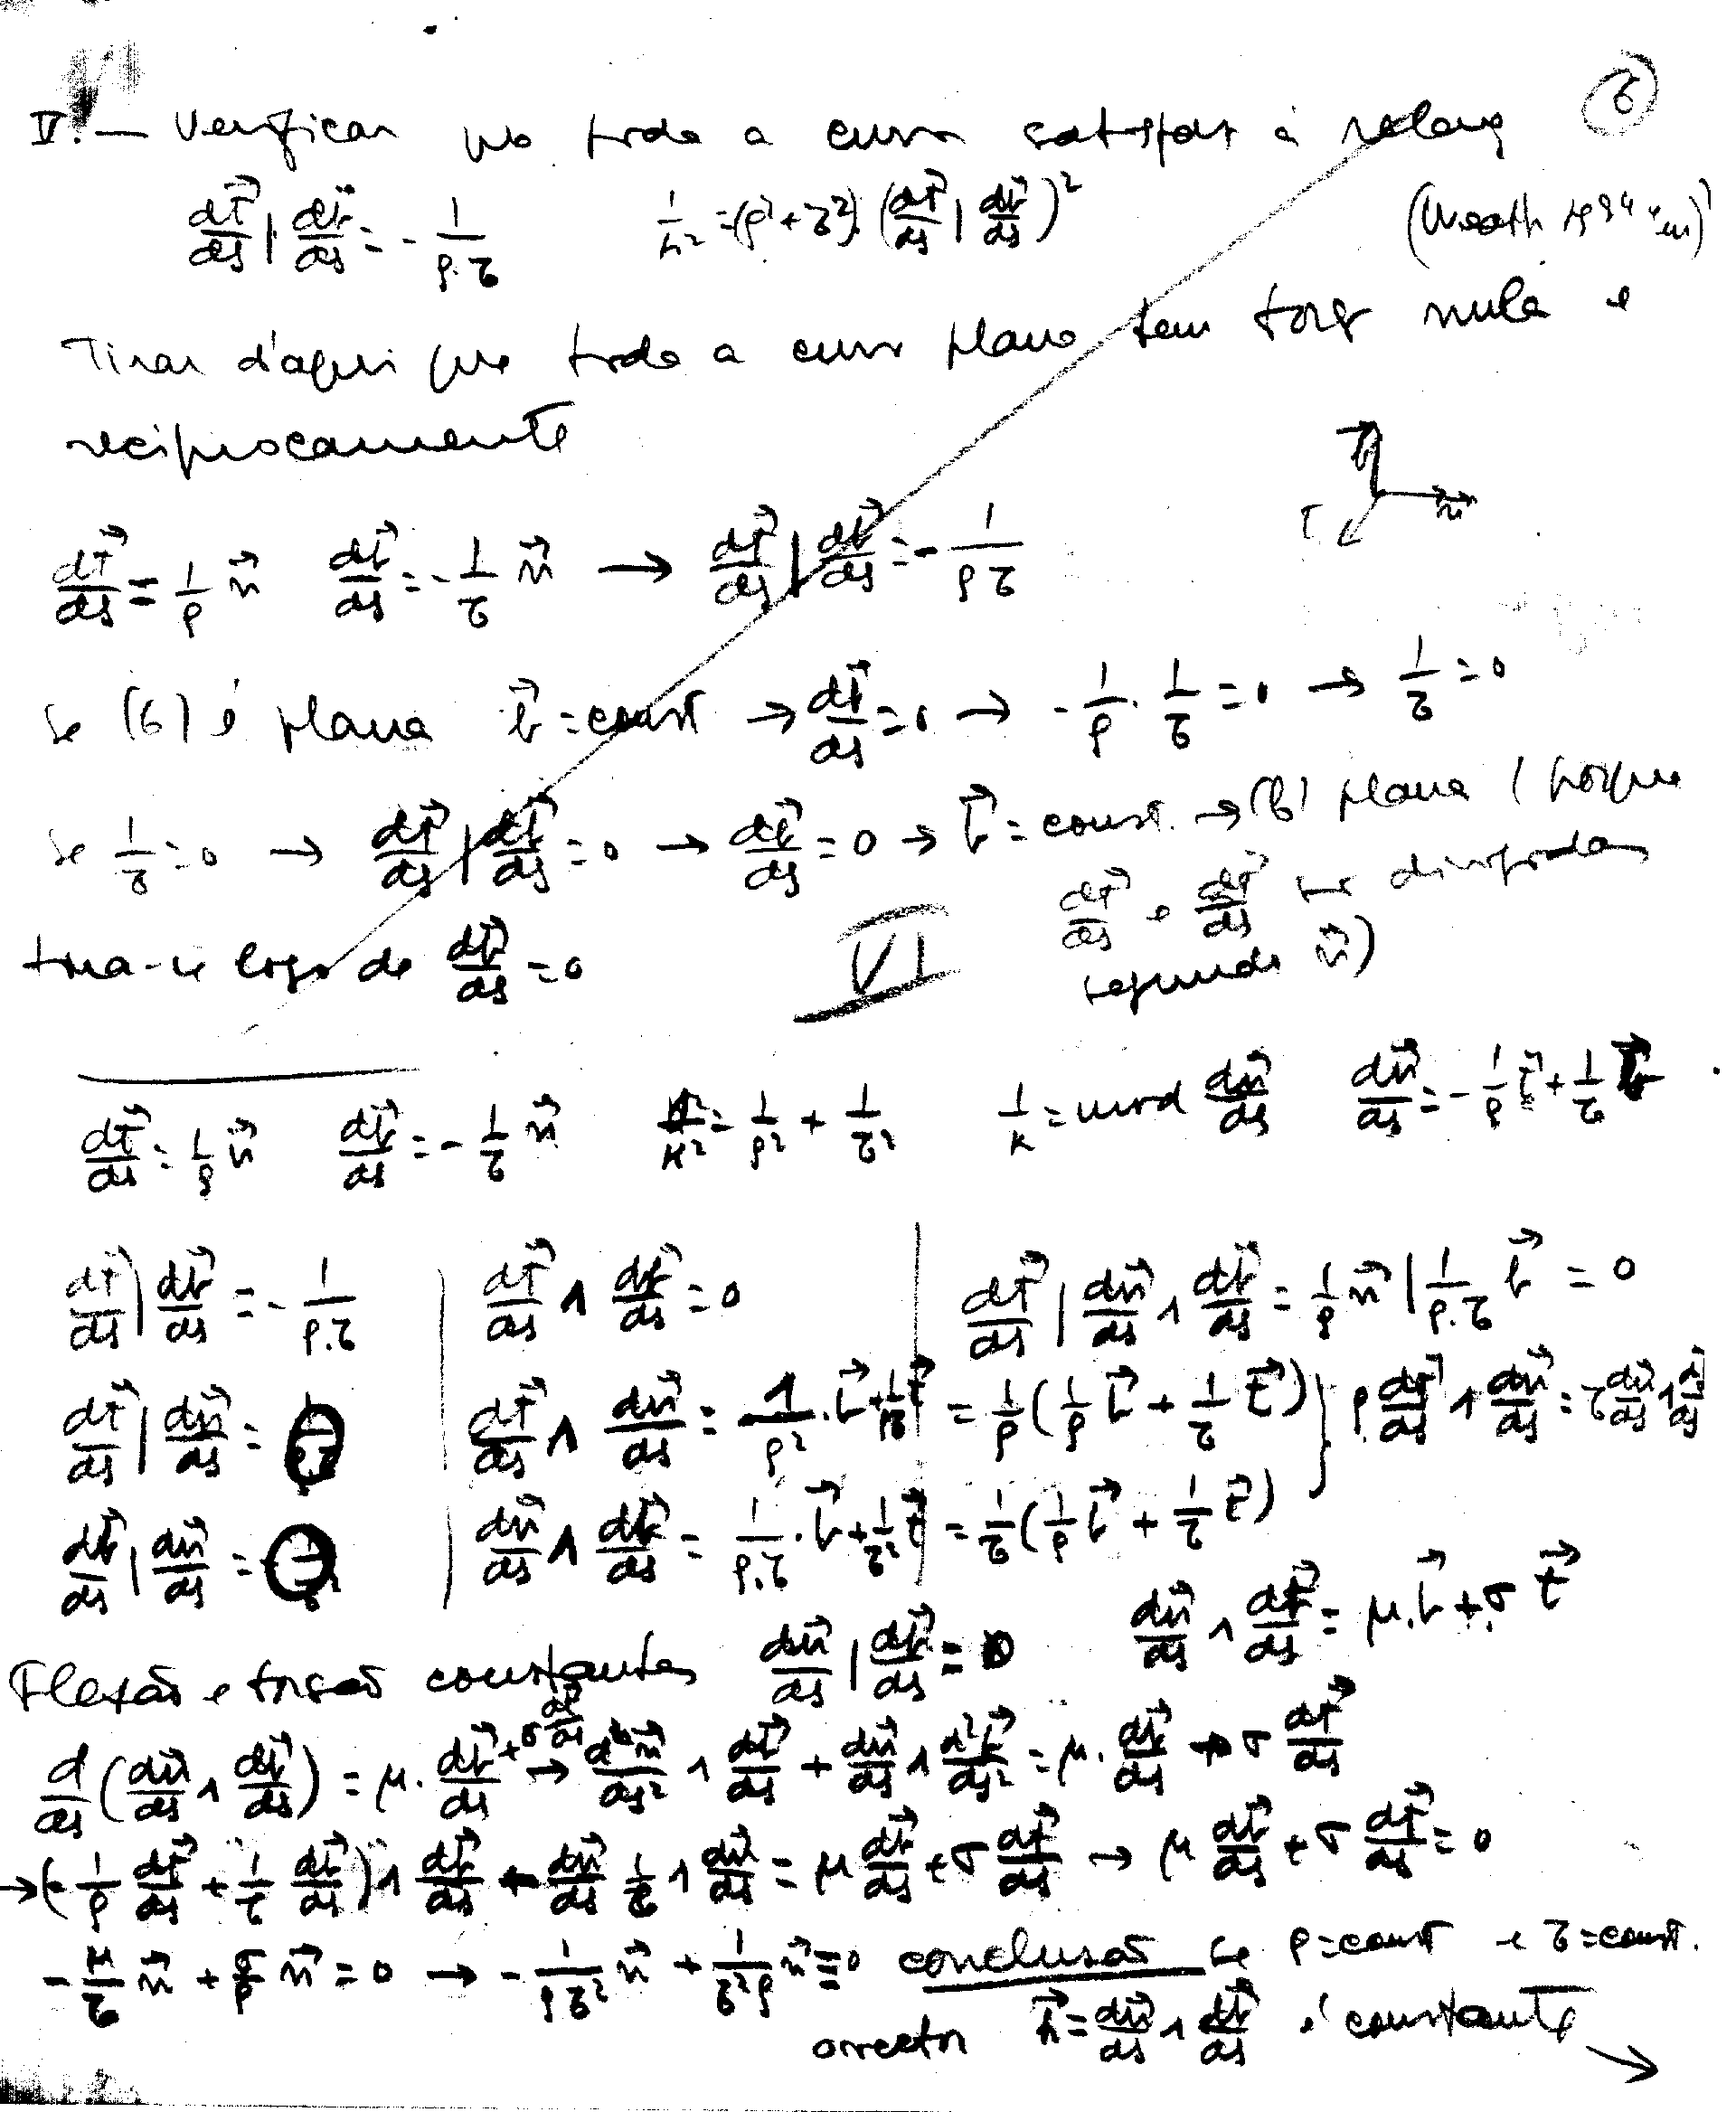 V. — Verificar que toda a curva satisfaz à relação (6)
dt⃗/ds | db⃗/ds = - 1/ρ.τ   1/k² = (ρ²+τ²).(dt⃗/ds | db⃗/ds)²
Tirar d'aqui que toda a curva plana tem torção nula e
reciprocamente
dt⃗/ds = 1/ρ n⃗   db⃗/ds = - 1/τ n⃗ → dt⃗/ds | db⃗/ds = - 1/ρτ
t b⃗ n⃗
Se (6) é plana b⃗ = const → db⃗/ds = 0 → - 1/ρ . 1/τ = 0 → 1/τ = 0
Se 1/τ = 0 → dt⃗/ds | db⃗/ds = 0 → db⃗/ds = 0 → b⃗ = const. → (6) plana (porque
dt⃗/ds e db⃗/ds são dirigidas
segundo n⃗)
tira-se logo de db⃗/ds = 0
VI
dt⃗/ds = 1/ρ n⃗   db⃗/ds = - 1/τ n⃗   1/k² = 1/ρ² + 1/τ²   1/k = mod dn⃗/ds   dn⃗/ds = - 1/ρ t⃗ + 1/τ b⃗
dt⃗/ds | db⃗/ds = - 1/ρ.τ   dt⃗/ds ∧ db⃗/ds = 0   dt⃗/ds | dn⃗/ds ∧ db⃗/ds = 1/ρ n⃗ | 1/ρ.τ b⃗ = 0
dt⃗/ds | dn⃗/ds = 0   dt⃗/ds ∧ dn⃗/ds = 1/ρ² . b⃗ + 1/ρτ t⃗ = 1/ρ (1/ρ b⃗ + 1/τ t⃗) } ρ dt⃗/ds ∧ dn⃗/ds = τ dn⃗/ds ∧ db⃗/ds
db⃗/ds | dn⃗/ds = 0   dn⃗/ds ∧ db⃗/ds = 1/ρ.τ . b⃗ + 1/τ² t⃗ = 1/τ (1/ρ b⃗ + 1/τ t⃗)
Flexão e torsão constantes   dn⃗/ds | db⃗/ds = 0   dn⃗/ds ∧ db⃗/ds = μ.b⃗ + σ t⃗
d/ds (dn⃗/ds ∧ db⃗/ds) = μ . db⃗/ds + σ dt⃗/ds → d²n⃗/ds² ∧ db⃗/ds + dn⃗/ds ∧ d²b⃗/ds² = μ . db⃗/ds + σ dt⃗/ds
→ (- 1/ρ dt⃗/ds + 1/τ db⃗/ds) ∧ db⃗/ds - dn⃗/ds 1/τ ∧ dn⃗/ds = μ db⃗/ds + σ dt⃗/ds → μ db⃗/ds + σ dt⃗/ds = 0
- μ/τ n⃗ + σ/ρ n⃗ = 0 → - 1/ρτ² n⃗ + 1/τ²ρ n⃗ ≡ 0 conclusão se ρ = const e τ = const.
o vector h⃗ = dn⃗/ds ∧ db⃗/ds é constante →